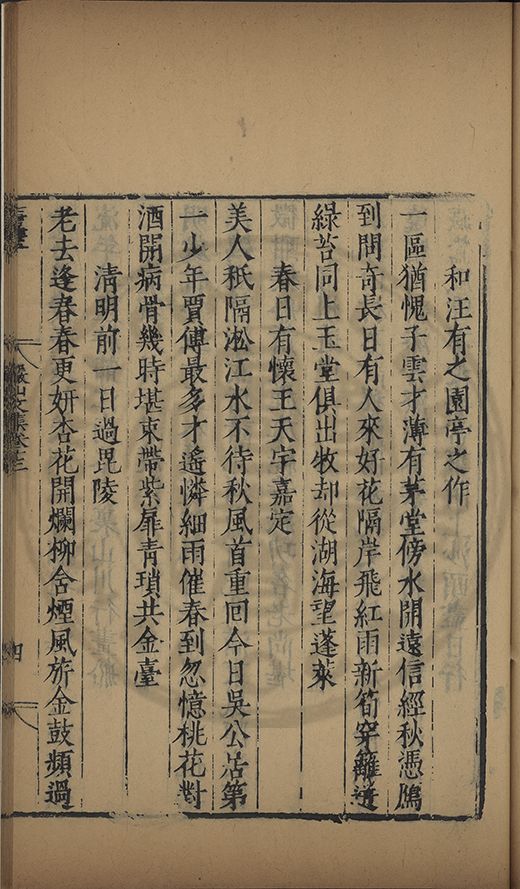 和汪有之園亭之作
一區猶愧子雲才薄有茅堂傍水開遠信經秋憑鴈
到問奇長日有人來好花隔岸飛紅雨新筍穿籬迸
綠苔同上玉堂俱出牧却從湖海望蓬萊
春日有懷王天宇嘉定
美人秖隔淞江水不待秋風首重回今日吳公居第
一少年賈傅最多才遙憐細雨催春到忽憶桃花對
酒開病骨幾時堪束帶紫扉青瑣共金臺
清明前一日過毘陵
老去逢春春更妍杏花開爛柳含煙風旂金鼓頻過
四